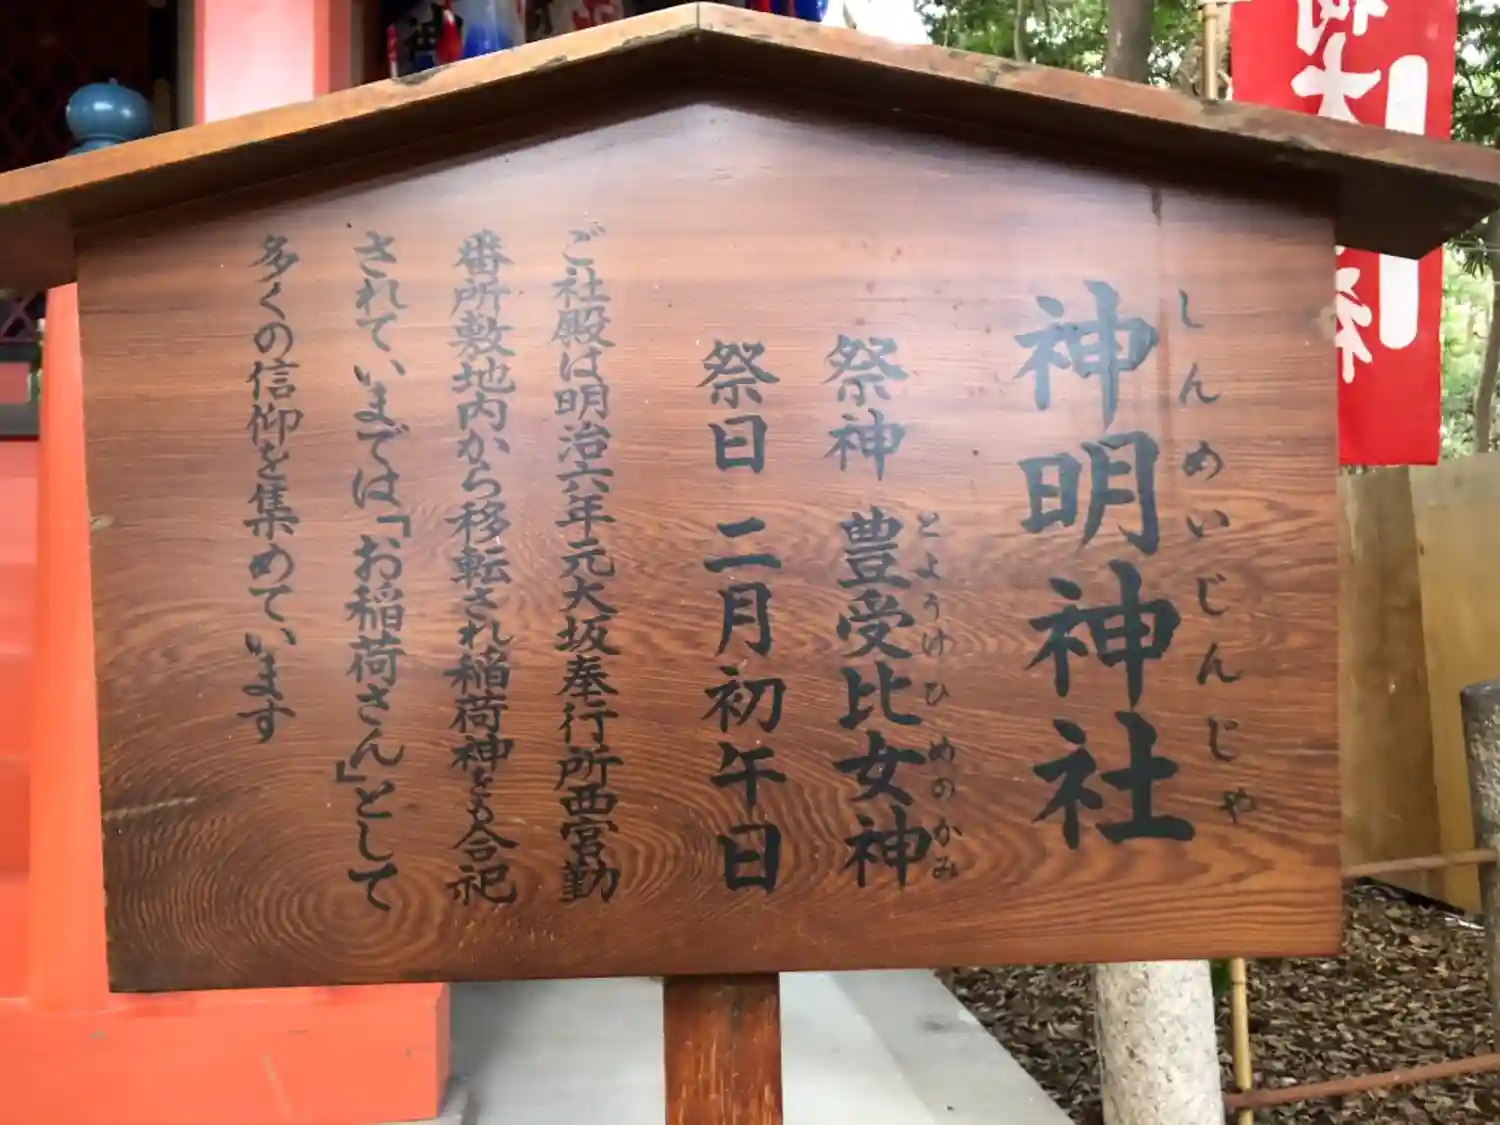 しんめいじんじゃ
神明神社
祭神 豊受比女神
とようけひめのかみ
祭日 二月初午日
ご社殿は明治六年元大坂奉行所西宮勤
番所敷地内から移転され稲荷神をも合祀
されていまでは「お稲荷さん」として
多くの信仰を集めています